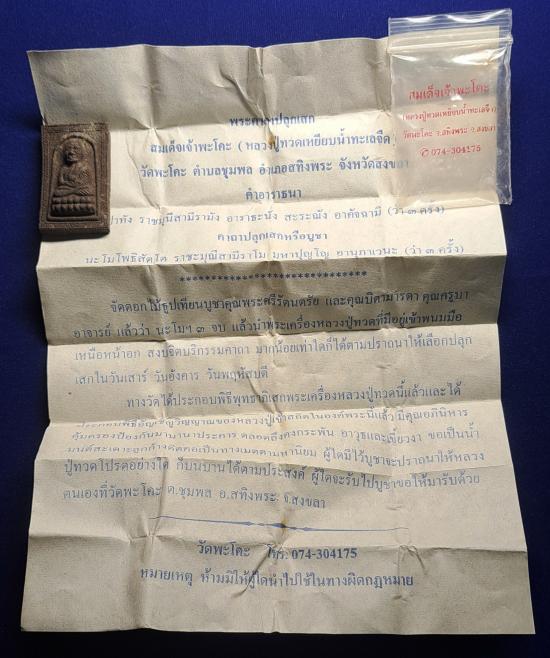 พระคาถาปลุกเสก
สมเด็จเจ้าพะโคะ ( หลวงปู่ทวดเหยียบน้ำทะเลจืด )
วัดพะโคะ ตำบลชุมพล อำเภอสทิงพระ จังหวัดสงขลา
คำอาราธนา
ราชมุนีสามิรามัง อาราธะนัง สะระณัง อาคัจฉามี (ว่า ๓ ครั้ง)
คาถาปลุกเสกหรือบูชา
นะโมโพธิสัตโต ราชะมุณีสามิราโม มหาปุญโญ ยานุภาเวนะ (ว่า ๓.ครั้ง)
******************************
จัดดอกไม้ธูปเทียนบูชาคุณพระศรีรัตนตรัย และคุณบิดามารดา คุณครูบา
อาจารย์ แล้วว่า นะโมฯ ๓ จบ แล้วนำพระเครื่องหลวงปู่ทวดที่มีอยู่เข้าพนมมือ
เหนือหน้าอก สงบจิตบริกรรมคาถา มากน้อยเท่าใดก็ได้ตามปราถนาให้เลือกปลุก
เสกในวันเสาร์ วันอังคาร วันพฤหัสบดี
ทางวัดได้ประกอบพิธีพุทธาภิเสกพระเครื่องหลวงปู่ทวดนี้แล้วและได้
ประกอบพิธีอัญเชิญวิญญาณของหลวงปู่เข้าสถิตในองค์พระนี้แล้วมีคุณอภินิหาร
คุ้มครองป้องกันนานาประการ ตลอดถึงคงกระพัน อาวุธและเขี้ยวงา ขอเป็นน้ำ
มนต์สะเดาะลูกก้างติดคอเป็นทางเมตตามหานิยม ผู้ใดมีไว้บูชาจะปราถนาให้หลวง
ปู่ทวดโปรดอย่างใด ก็บนบานได้ตามประสงค์ ผู้ใดจะรับไปบูชาขอให้มารับด้วย
ตนเองที่วัดพะโคะ ต.ชุมพล อ.สทิงพระ จ.สงขลา
วัดพะโคะ โทร. 074-304175
หมายเหตุ ห้ามมิให้ผู้ใดนำไปใช้ในทางผิดกฎหมาย
สมเด็จเจ้าพะโคะ
(หลวงปู่ทวดเหยียบน้ำทะเลจืด)
วัดพะโคะ อ.สทิงพระ จ.สงขลา
✆ 074-304175